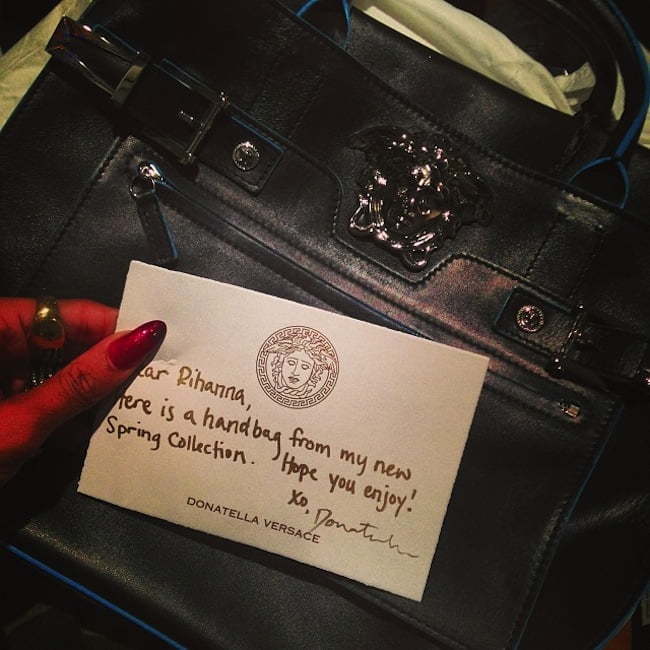 ear Rihanna,
Here is a handbag from my new
Spring Collection. Hope you enjoy!
Xo, Donatella
DONATELLA VERSACE